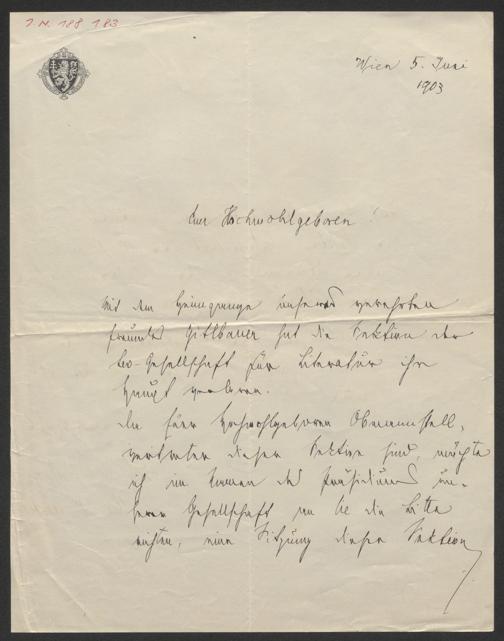 I.N. 188 183
Wien 5. Juni
1903
Euer Hochwohlgeboren!
Mit dem Heimgange unseres verehrten
Freundes Gitlbauer hat die Sektion der
Leo-Gesellschaft für Literatur ihr
Haupt verloren.
Da Euer Hochwohlgeboren Obmannstell-
vertreter dieser Sektion sind, möchte
ich im Namen des Präsidiums un-
serer Gesellschaft an Sie die Bitte
richten, eine Sitzung dieser Sektion